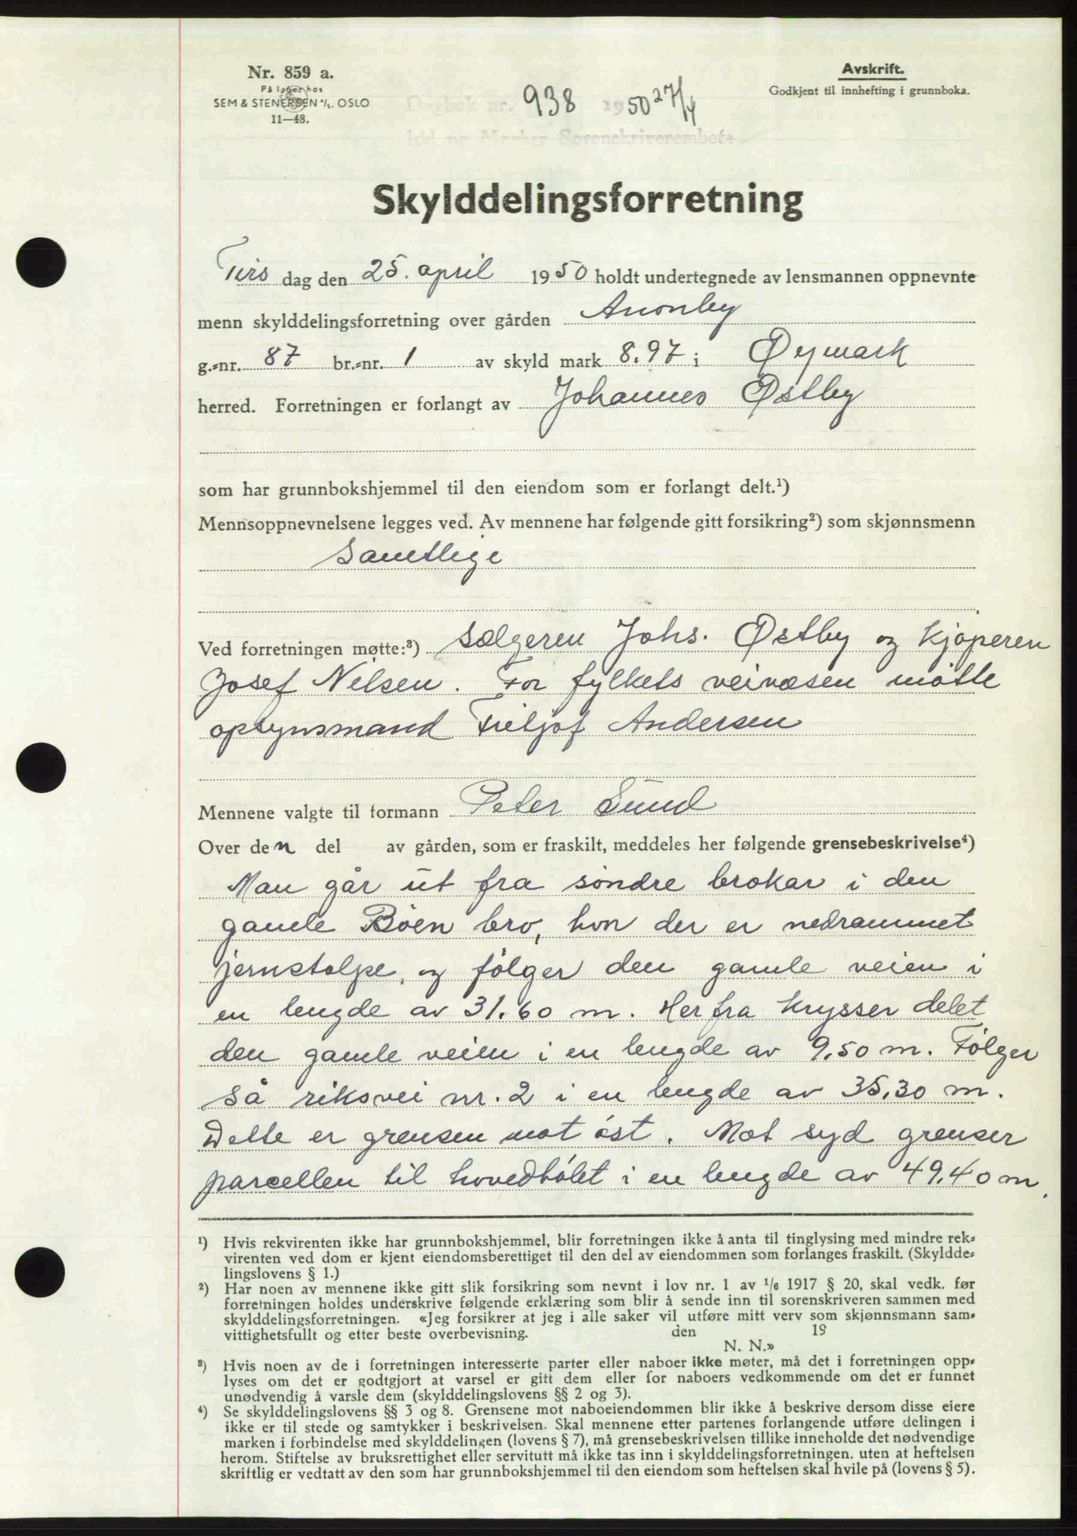 Nr. 859 a.
På lager hos
SEM & STENERSEN A/S, OSLO
11—48.
Dagbok nr. 938 1950 27/4
Idd og Marker Sorenskriverembete.
Avskrift.
Godkjent til innhefting i grunnboka.
Skylddelingsforretning
Tirs dag den 25. april 1950 holdt undertegnede av lensmannen oppnevnte
menn skylddelingsforretning over gården Anonby
g.-nr. 87 br.-nr. 1 av skyld mark 8.97 i Øymark
herred. Forretningen er forlangt av Johannes Østby
som har grunnbokshjemmel til den eiendom som er forlangt delt.¹)
Mennsoppnevnelsene legges ved. Av mennene har følgende gitt forsikring²) som skjønnsmenn
Samtlige
Ved forretningen møtte:³) Sælgeren Johs. Østby og kjøperen
Josef Nilsen. For fylkets veivæsen møtte
opsynsmand Fritjof Andersen
Mennene valgte til formann Peter Sund
Over den del av gården, som er fraskilt, meddeles her følgende grensebeskrivelse⁴)
Man går ut fra søndre brokar i den
gamle Böen bro, hvor der er nedrammet
jernstolpe, og følger den gamle veien i
en lengde av 31.60 m. Herfra krysser delet
den gamle veien i en lengde av 9,50 m. Følger
så riksvei nr. 2 i en lengde av 35,30 m.
Dette er grensen mot øst. Mot syd grenser
parcellen til hovedbølet i en lengde av 49,40 m.
¹) Hvis rekvirenten ikke har grunnbokshjemmel, blir forretningen ikke å anta til tinglysing med mindre rek-
virenten ved dom er kjent eiendomsberettiget til den del av eiendommen som forlanges fraskilt. (Skyldde-
lingslovens § 1.)
²) Har noen av mennene ikke gitt slik forsikring som nevnt i lov nr. 1 av 1/6 1917 § 20, skal vedk. før
forretningen holdes underskrive følgende erklæring som blir å sende inn til sorenskriveren sammen med
skylddelingsforretningen. «Jeg forsikrer at jeg i alle saker vil utføre mitt verv som skjønnsmann sam-
vittighetsfullt og etter beste overbevisning. den 19
N. N.»
³) Hvis noen av de i forretningen interesserte parter eller naboer ikke møter, må det i forretningen opp-
lyses om det er godtgjort at varsel er gitt dem eller for naboers vedkommende om det er funnet
unødvendig å varsle dem (skylddelingslovens §§ 2 og 3).
⁴) Se skylddelingslovens §§ 3 og 8. Grensene mot naboeiendommen blir ikke å beskrive dersom disse eiere
ikke er til stede og samtykker i beskrivelsen. Skal mennene etter partenes forlangende utføre delingen i
marken i forbindelse med skylddelingen (lovens § 7), må grensebeskrivelsen tillike inneholde det nødvendige
herom. Stiftelse av bruksrettighet eller servitutt må ikke tas inn i skylddelingsforretningen, uten at heftelsen
skriftlig er vedtatt av den som har grunnbokshjemmel til den eiendom som heftelsen skal hvile på (lovens § 5).